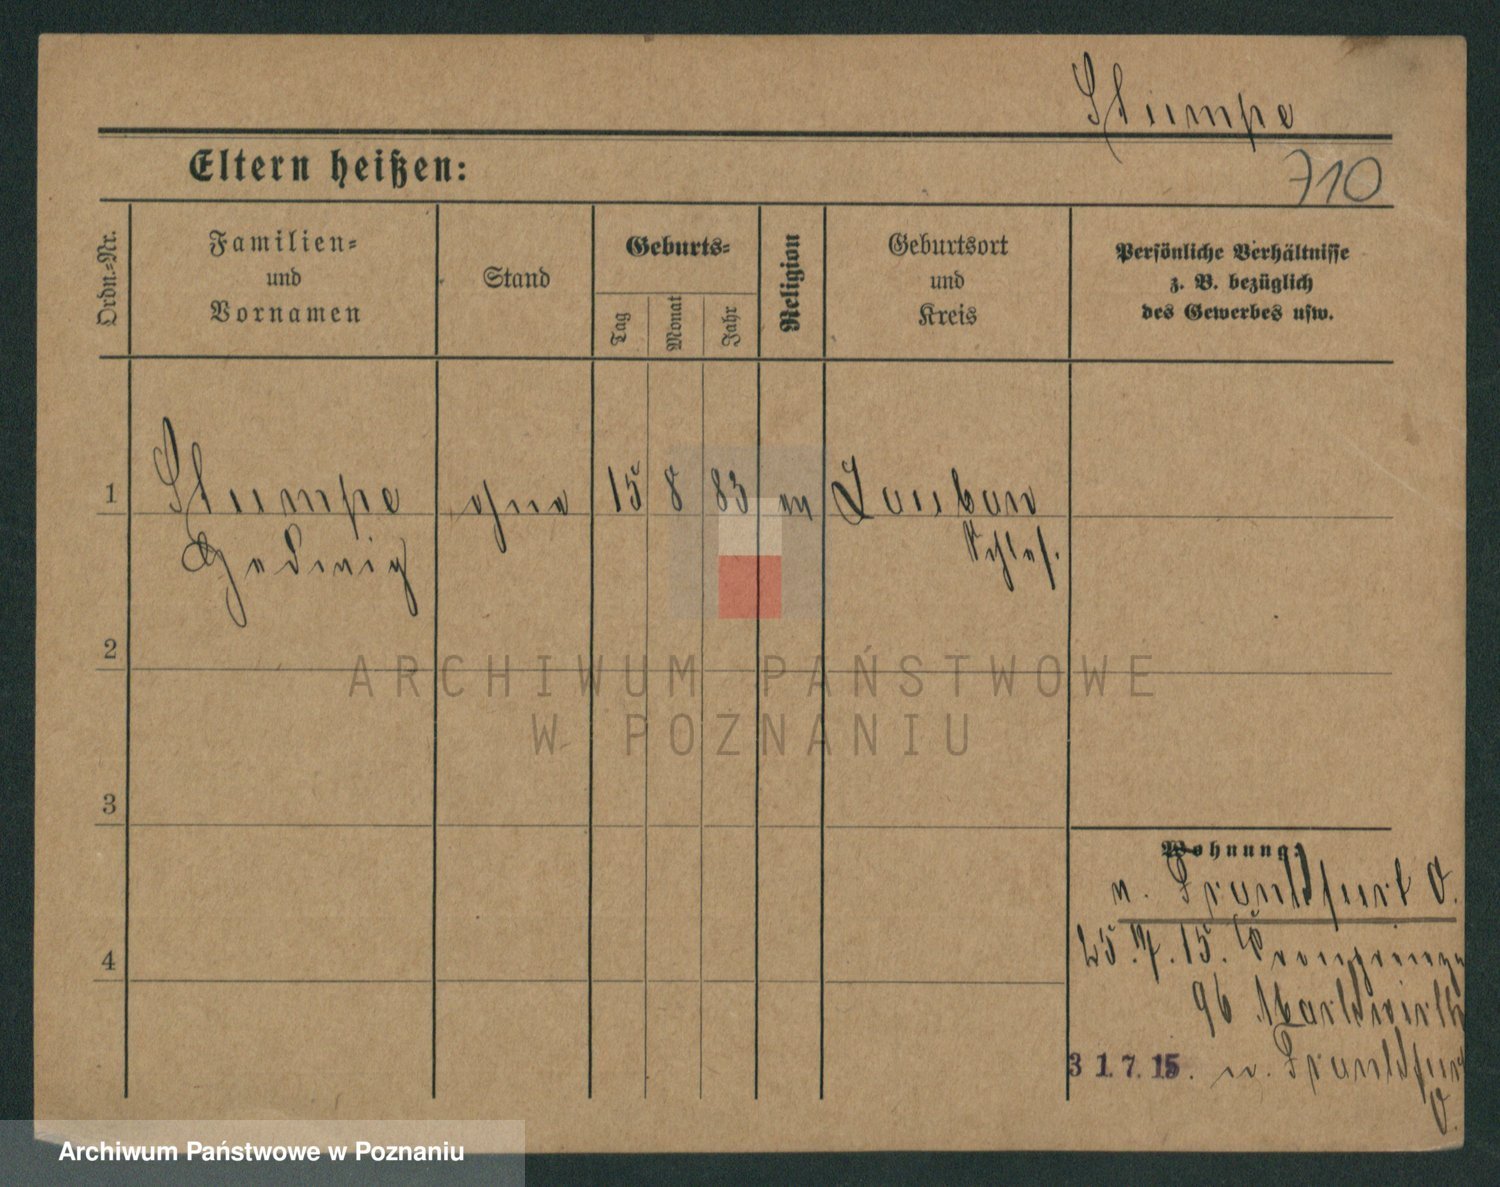 Stumpe
710
Eltern heißen:
Ordn.-Nr.
Familien-
und
Vornamen
Stand
Geburts-
Tag
Monat
Jahr
Religion
Geburtsort
und
Kreis
Persönliche Verhältnisse
z. B. bezüglich
des Gewerbes usw.
1
Stumpe
Hedwig
ohne
15
8
83
ev
Lauban
Schles.
2
ARCHIWUM PAŃSTWOWE
W POZNANIU
3
Wohnung:
n. Frankfurt O.
4
25.7.15. Kronprinz
96
31.7.15. n. Frankfurt
O.
Archiwum Państwowe w Poznaniu